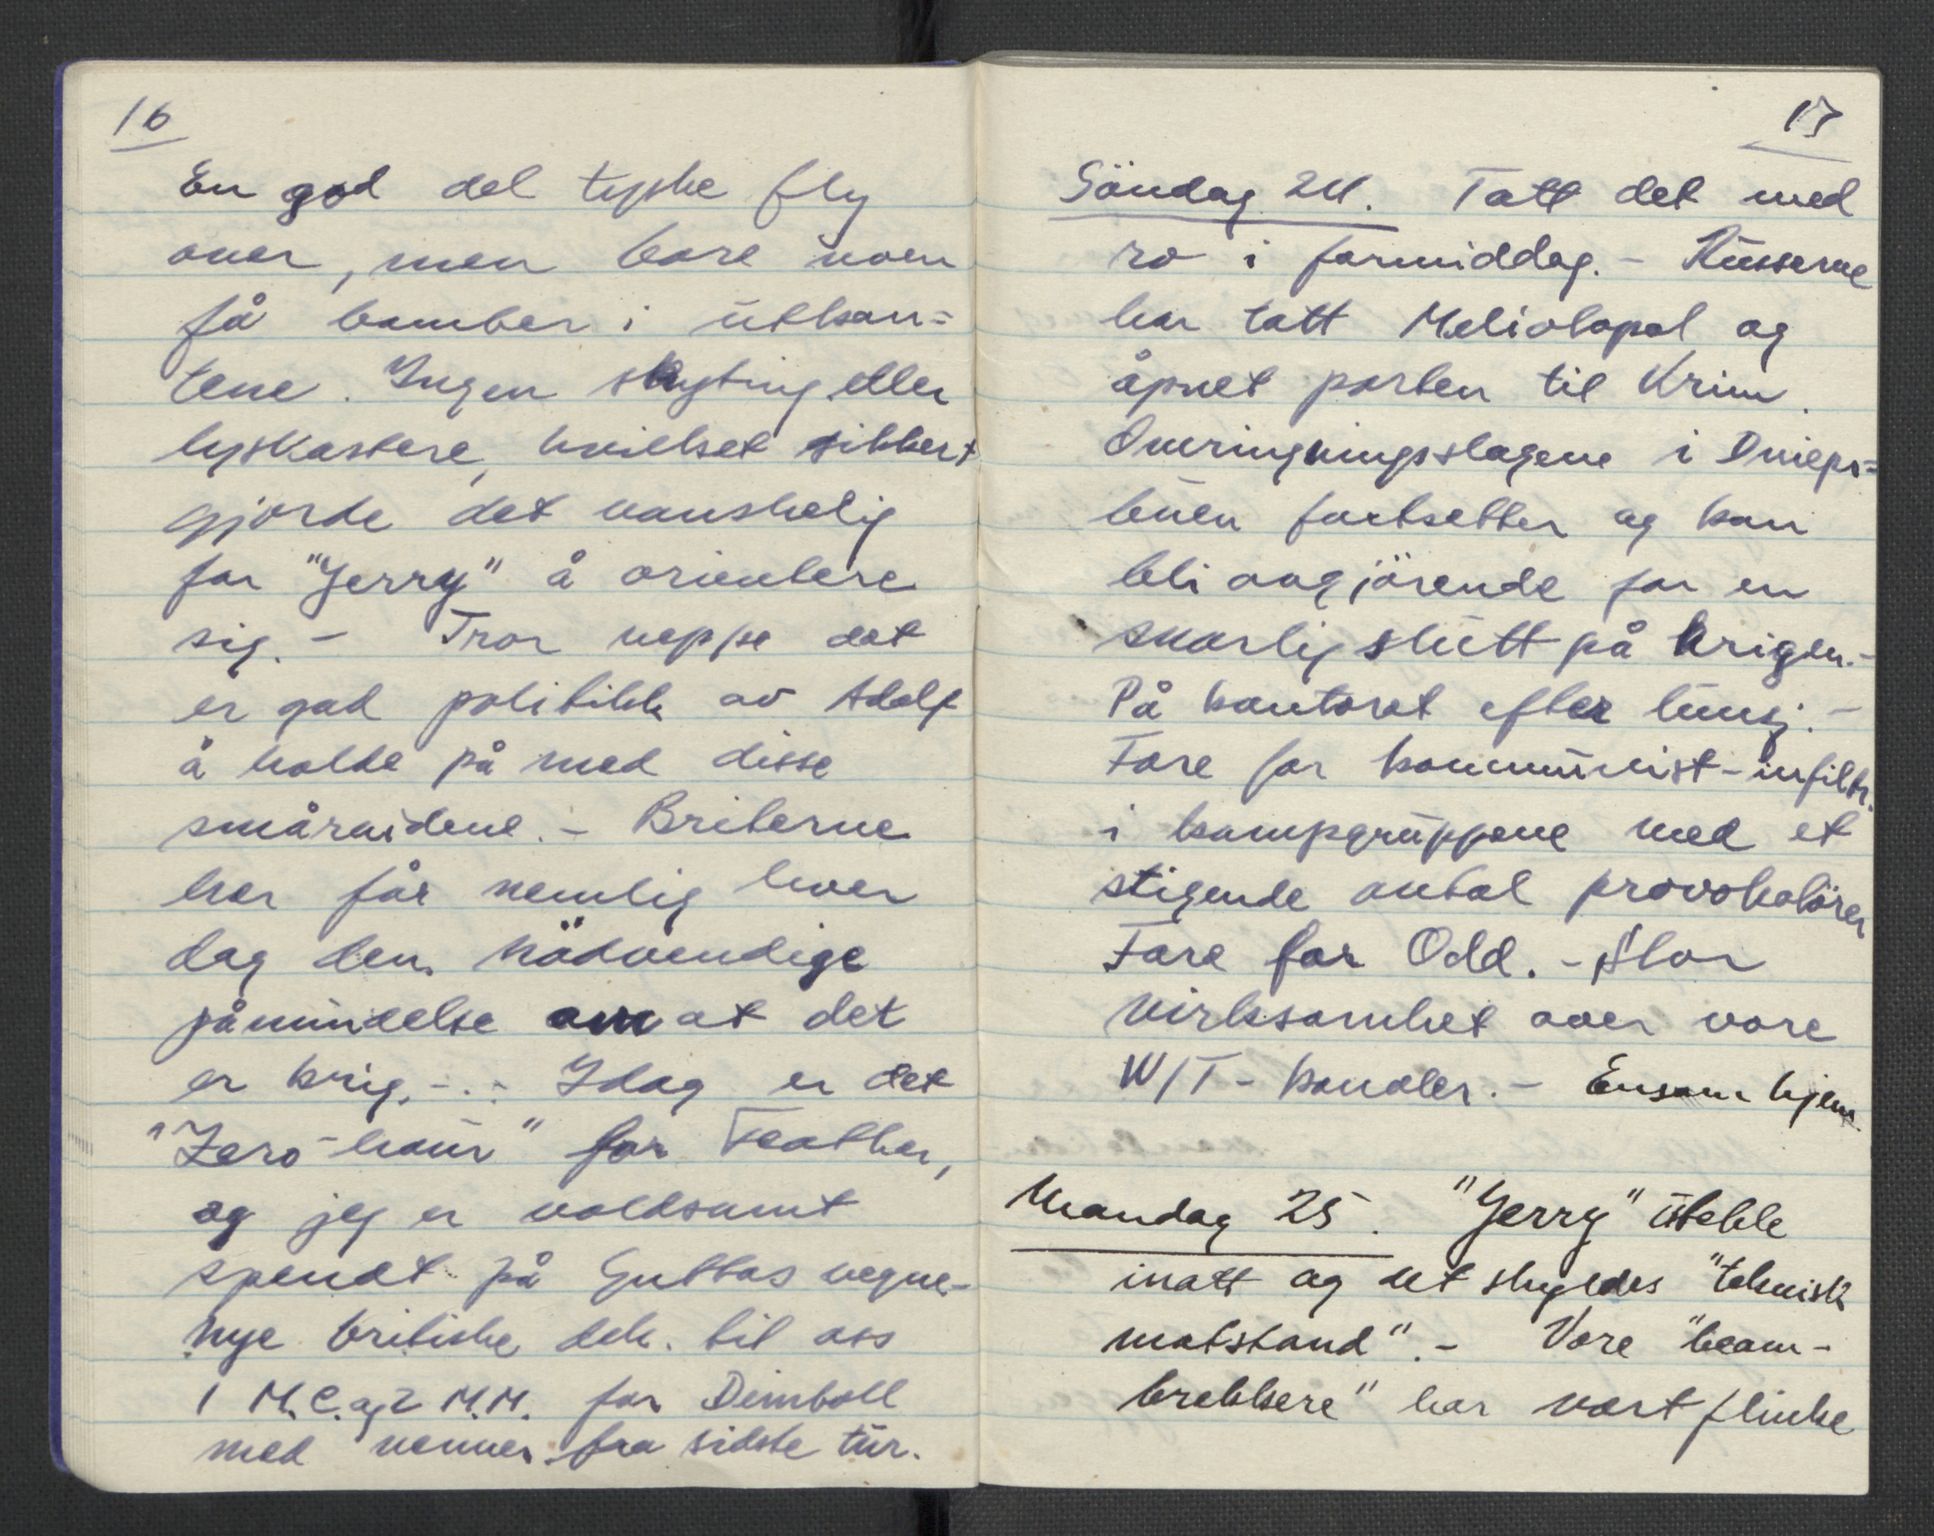 16
En god del tyske fly
over, men bare noen
få bomber i utkan=
tene. Ingen skyting eller
lyskastere, hvilket sikkert
gjorde det vanskelig
for "Jerry" å orientere
sig. - Tror neppe det
er god politikk av Adolf
å holde på med disse
småraidene. - Briterne
her får nemlig hver
dag den nödvendige
påmindelse om at det
er krig. - . - Idag er det
"Zero-hour" for Feather,
og jeg er voldsomt
spendt på Guttas vegne. -
Nye britiske dek. til oss
1 M.C. og 2 M.M. for
med venner fra sidste tur.
17
Söndag 24. Tatt det med
ro i formiddag. - Russerne
har tatt Meliotopol og
åpnet porten til Krim.
Omringningsslagene i Dniepr=
buen fortsetter og kan
bli avgjörende for en
snarlig slutt på krigen. -
På kontoret efter lunsj. -
Fare for kommunist-infiltr.
i kampgruppene med et
stigende antal provokatörer
Fare for Odd. - Stor
virksomhet over vore
W/T - kanaler. - Ensom hjem.
Mandag 25. "Jerry" uteble
inatt og det skyldes "teknisk
motstand". - Vore "beam-
brekkere" har vært flinke